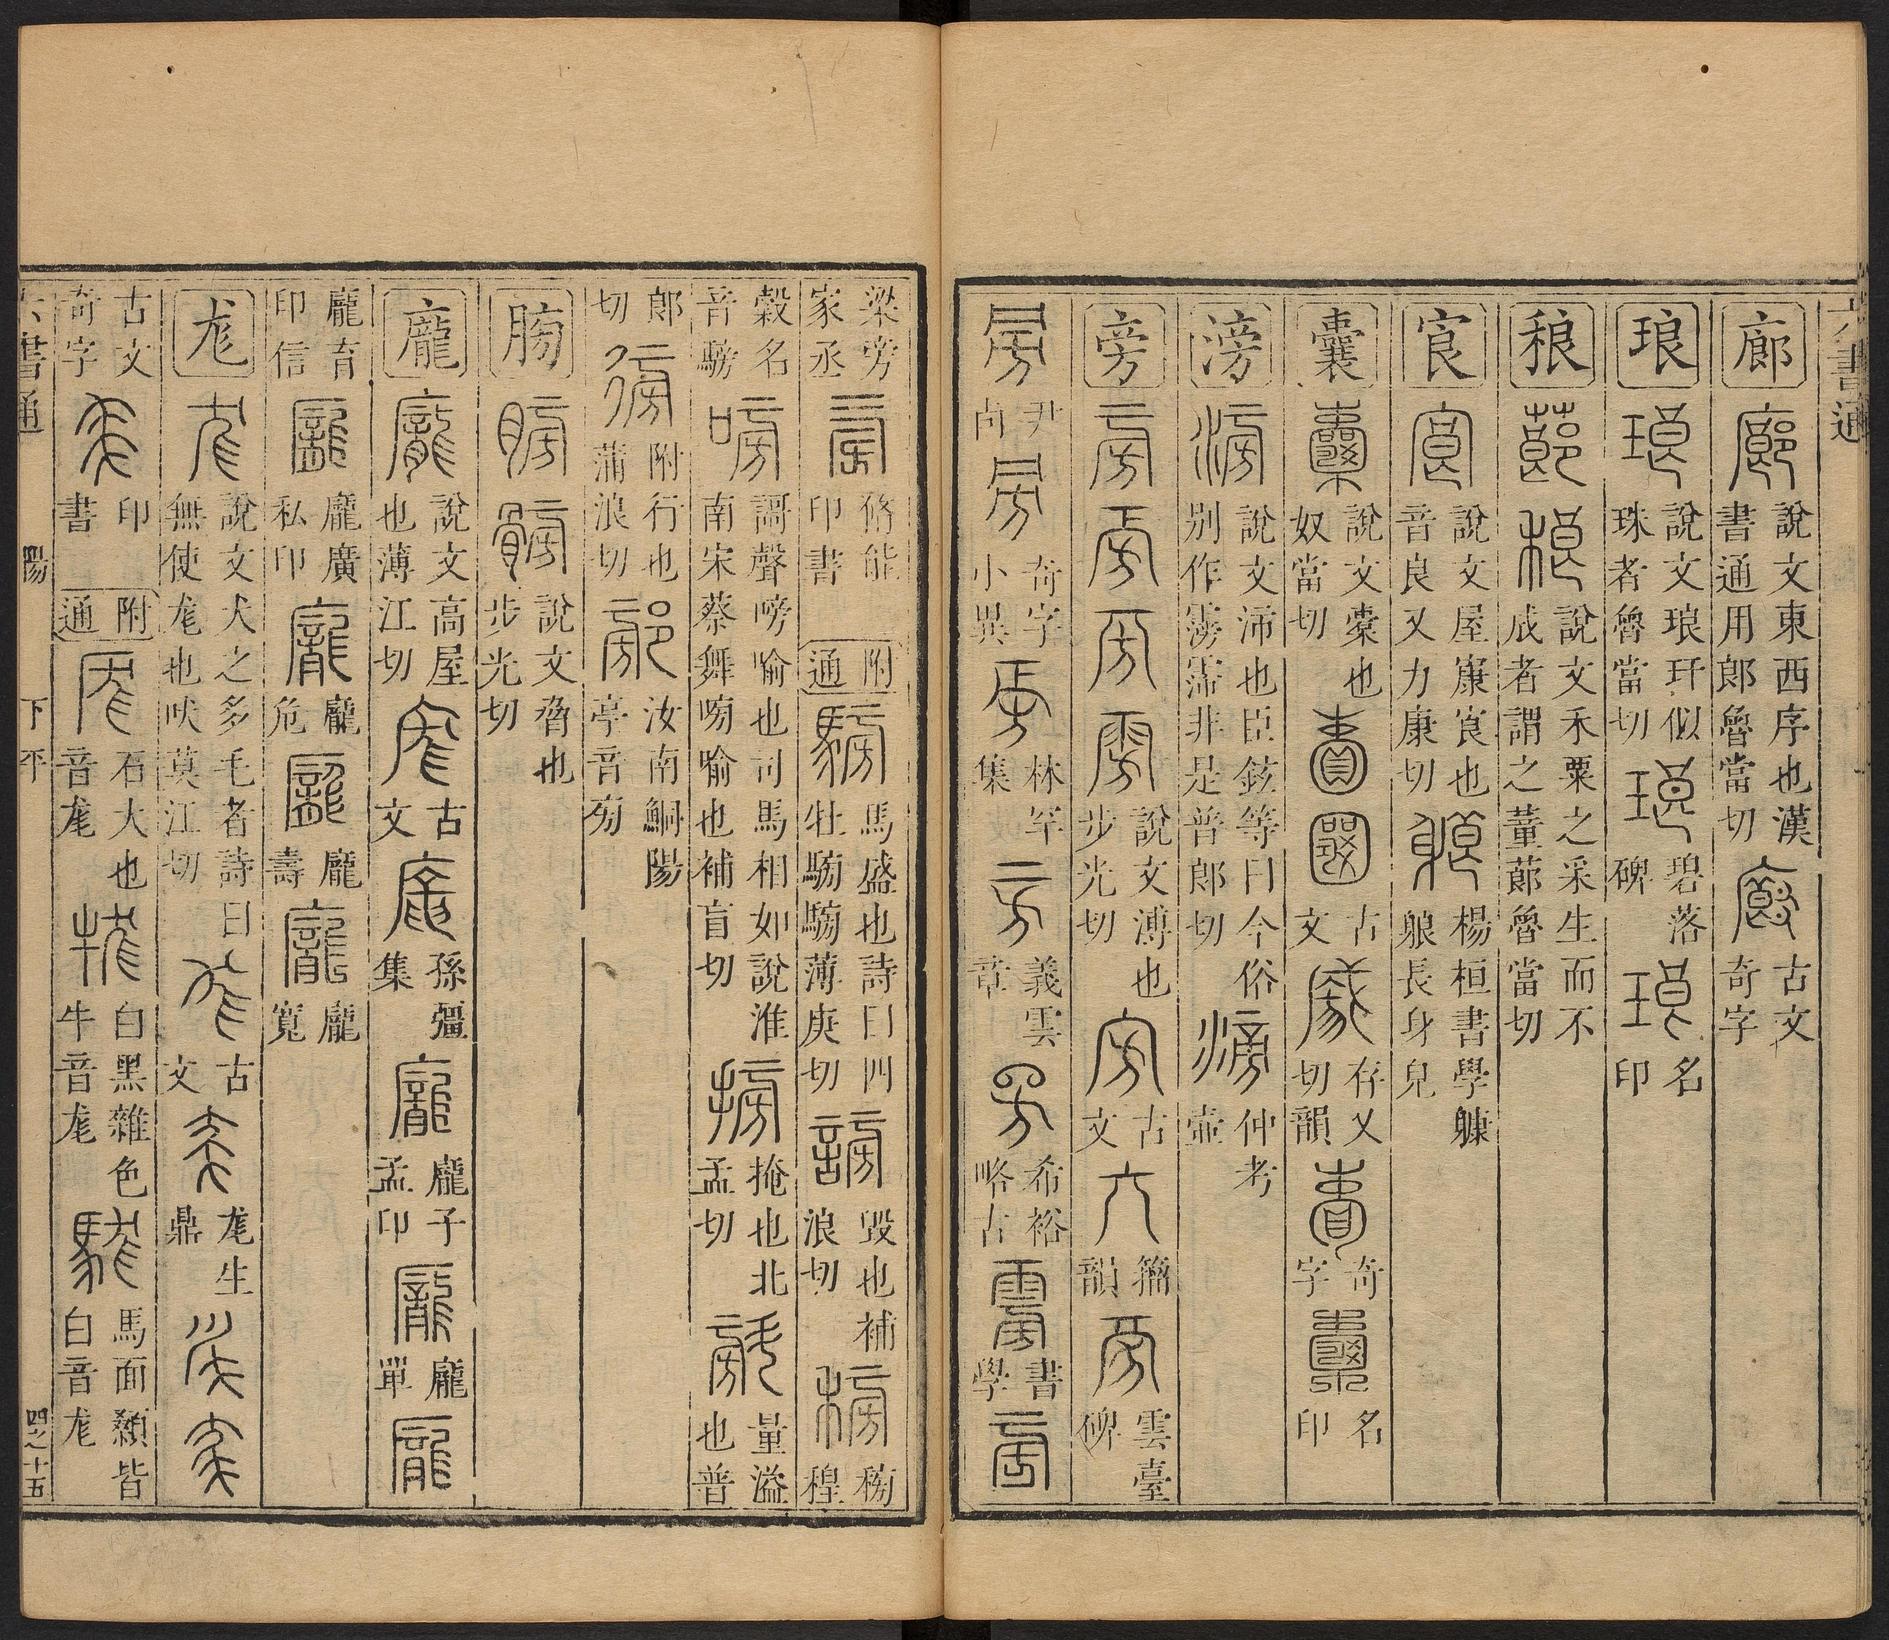 六書通
廊 說文東西序也漢書通用郎魯當切 古文奇字
琅 說文琅玕似珠者魯當切 碧落碑 名印
稂 說文禾粟之采生而不成者謂之董蓈魯當切
㝗 說文屋㝩㝗也音良又力康切 楊桓書學躿躴長身皃
囊 說文橐也奴當切 古文 存乂切韻 奇字 名印
滂 說文沛也臣鉉等曰今俗別作霶霈非是普郎切 仲考壺
旁 說文溥也步光切 古文 籀韻 雲臺碑
尹卣 奇字小異 林罕集 義雲章 希裕略古 書學
梁旁家丞 脩能印書 附通 馬盛也詩曰四牡騯騯薄庚切 毀也補浪切 䅭䅣
穀名音騯 謌聲嗙喻也司馬相如說淮南宋蔡舞嗙喻也補盲切 掩也北孟切 量溢也普
郎切 附行也蒲浪切 汝南鮦陽亭音旁
膀 說文脅也步光切
龐 說文高屋也薄江切 古文 孫彊集 龐子孟印 龐單
龐育印信 龐廣私印 龐危 龐壽 龐寬
尨 說文犬之多毛者詩曰無使尨也吠莫江切 古文 尨生鼎
古文奇字 印書 附通 石大也音尨 白黑雜色牛音尨 馬面顙皆白音尨
六書通 陽 下平 四之十五